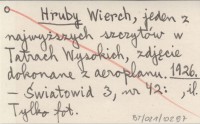 Hruby Wierch, jeden z
najwyższych szczytów w
Tatrach Wysokich, zdjęcie
dokonane z aeroplanu. 1926.
— Światowid 3, nr 42: , il.
Tylko fot.